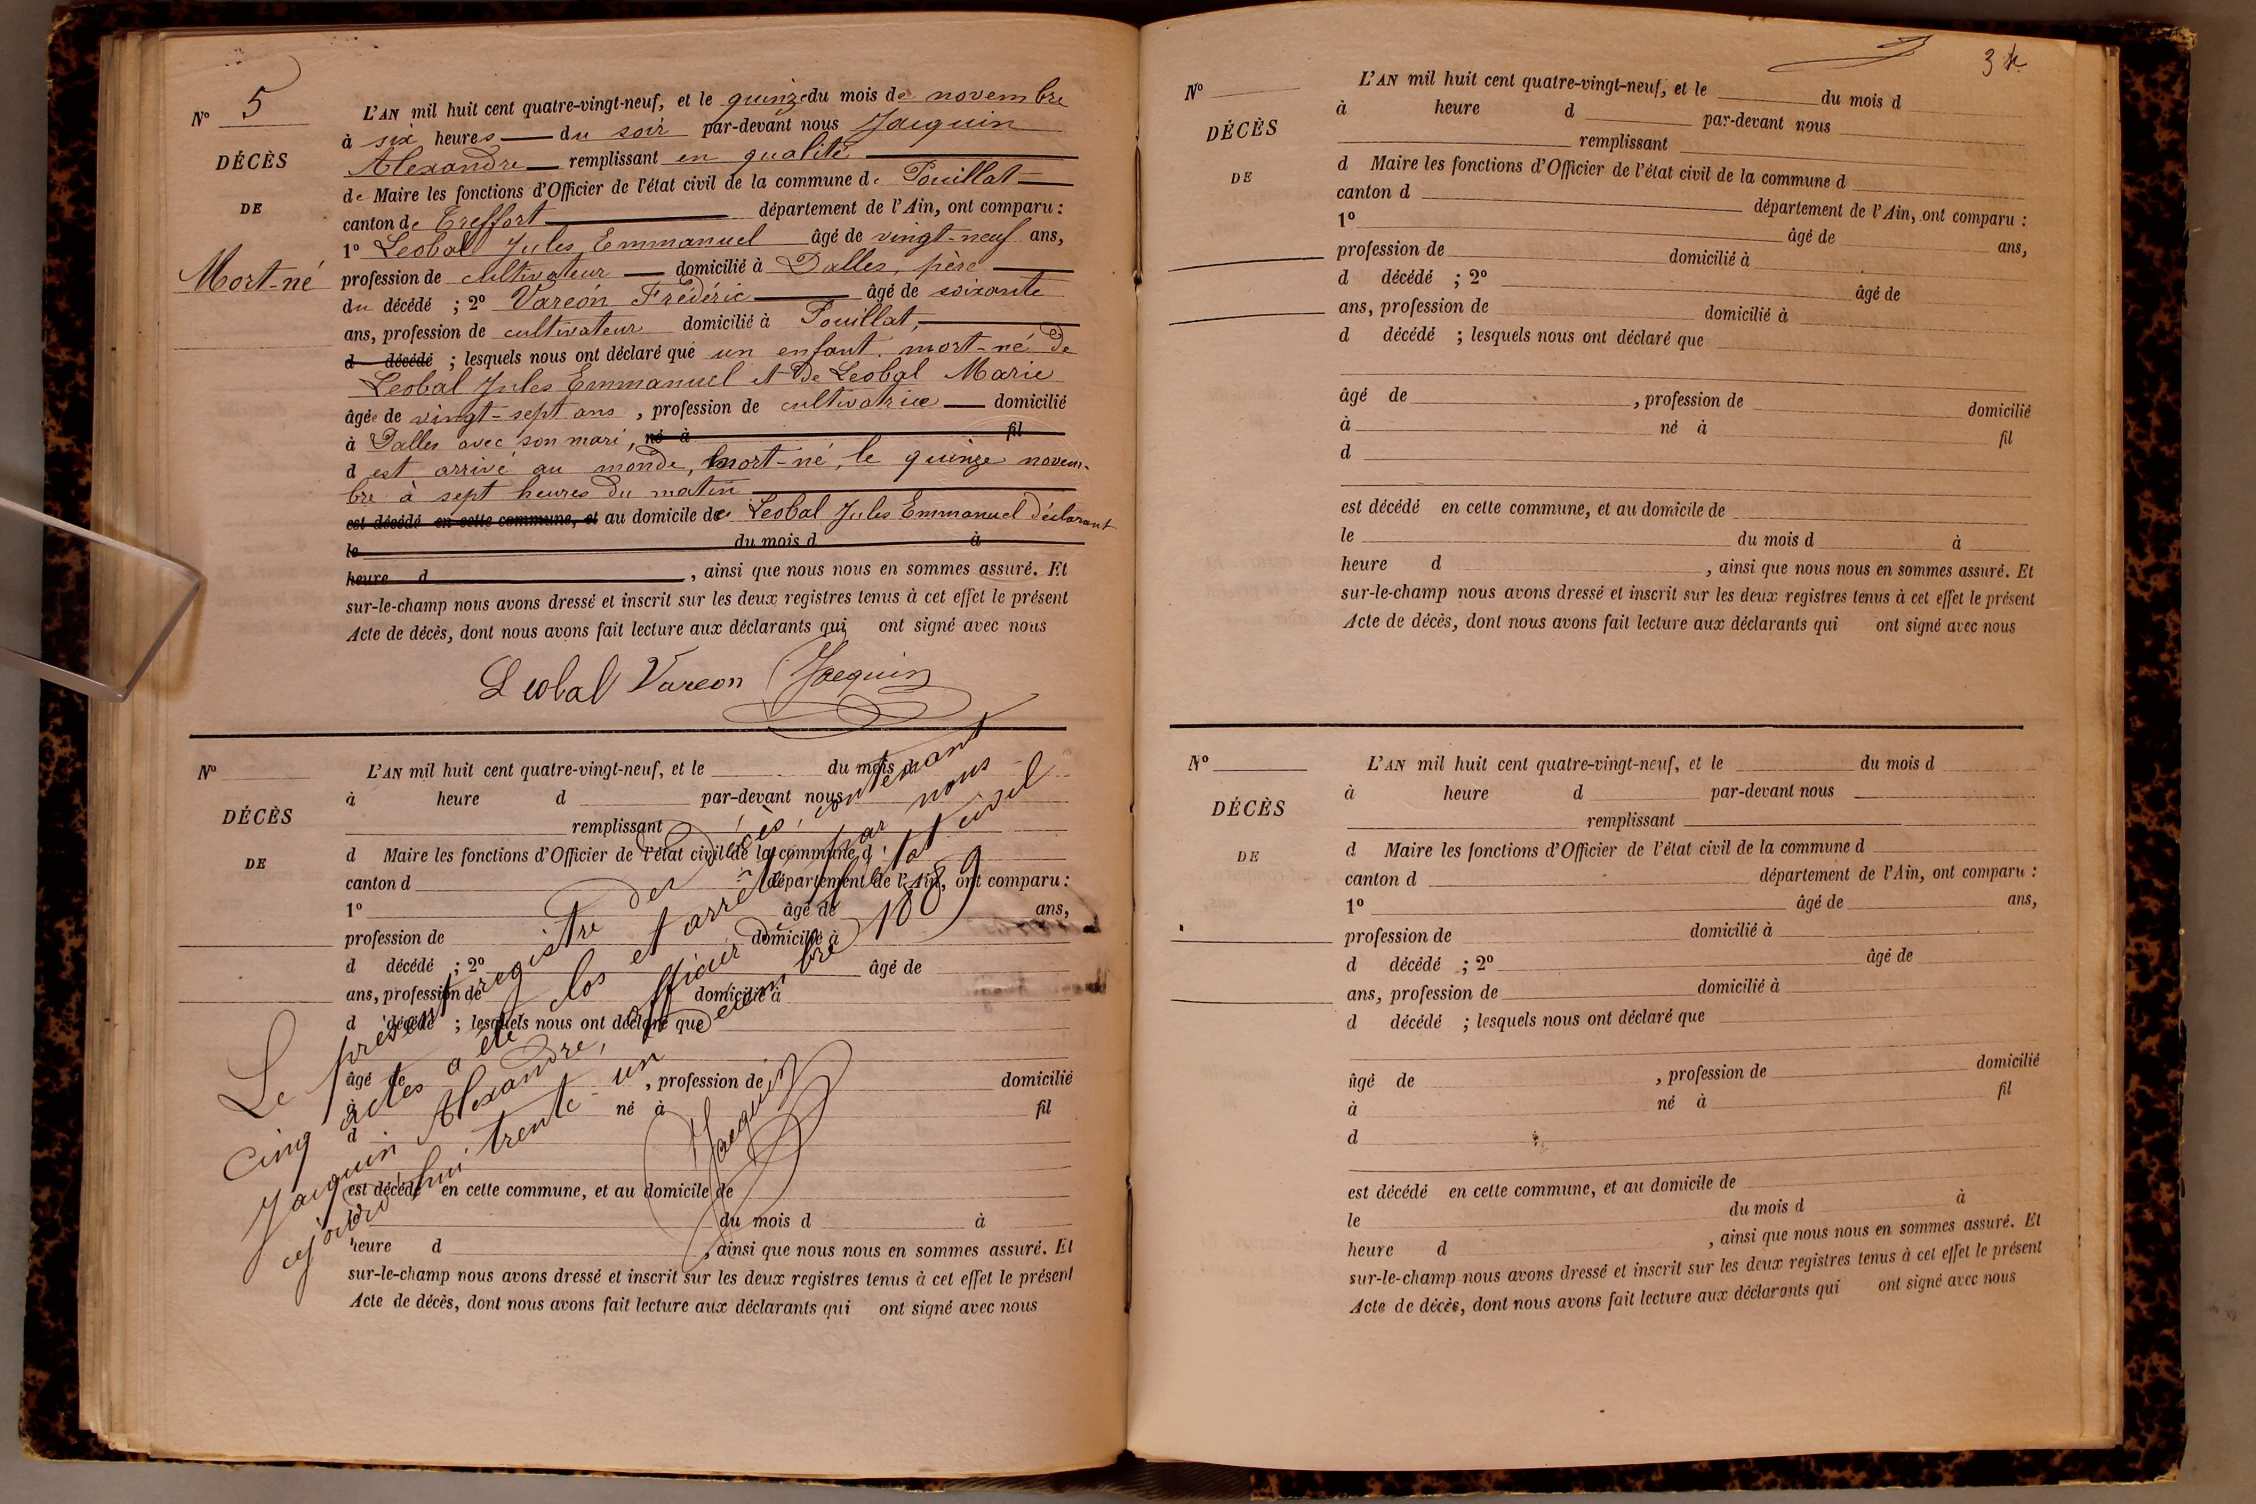 Nº 5
DÉCÈS
DE
Mort-né
L'AN mil huit cent quatre-vingt-neuf, et le quinze du mois de novembre
à six heures du soir par-devant nous Jacquin
Alexandre remplissant en qualité
de Maire les fonctions d'Officier de l'état civil de la commune de Pouillat
canton de Treffort département de l'Ain, ont comparu :
1º Leobal Jules Emmanuel âgé de vingt-neuf ans,
profession de cultivateur domicilié à Dalles, père
du décédé ; 2º Varéon Frédéric âgé de soixante
ans, profession de cultivateur domicilié à Pouillat,
d décédé ; lesquels nous ont déclaré que un enfant mort-né de
Leobal Jules Emmanuel et de Leobal Marie
âgée de vingt-sept ans , profession de cultivatrice domicilié
à Dalles avec son mari, né à fil
d est arrivé au monde, mort-né, le quinze novem-
bre à sept heures du matin
est décédé en cette commune, et au domicile de Leobal Jules Emmanuel déclarant
le du mois d à
heure d , ainsi que nous nous en sommes assuré. Et
sur-le-champ nous avons dressé et inscrit sur les deux registres tenus à cet effet le présent
Acte de décès, dont nous avons fait lecture aux déclarants qui ont signé avec nous
Leobal Vareon Jacquin
Nº
DÉCÈS
DE
L'AN mil huit cent quatre-vingt-neuf, et le du mois d
à heure d par-devant nous
remplissant
d Maire les fonctions d'Officier de l'état civil de la commune d
canton d département de l'Ain, ont comparu :
1º âgé de ans,
profession de domicilié à
d décédé ; 2º âgé de
ans, profession de domicilié à
d décédé ; lesquels nous ont déclaré que
âgé de , profession de domicilié
à né à fil
d
est décédé en cette commune, et au domicile de
le du mois d à
heure d , ainsi que nous nous en sommes assuré. Et
sur-le-champ nous avons dressé et inscrit sur les deux registres tenus à cet effet le présent
Acte de décès, dont nous avons fait lecture aux déclarants qui ont signé avec nous
Le présent registre des décès, contenant
cinq actes a été clos et arrêté par nous
Jacquin Alexandre, officier de l'état civil
cejourd'hui trente-un décembre 1889
Jacquin
34
Nº
DÉCÈS
DE
L'AN mil huit cent quatre-vingt-neuf, et le du mois d
à heure d par-devant nous
remplissant
d Maire les fonctions d'Officier de l'état civil de la commune d
canton d département de l'Ain, ont comparu :
1º âgé de ans,
profession de domicilié à
d décédé ; 2º âgé de
ans, profession de domicilié à
d décédé ; lesquels nous ont déclaré que
âgé de , profession de domicilié
à né à fil
d
est décédé en cette commune, et au domicile de
le du mois d à
heure d , ainsi que nous nous en sommes assuré. Et
sur-le-champ nous avons dressé et inscrit sur les deux registres tenus à cet effet le présent
Acte de décès, dont nous avons fait lecture aux déclarants qui ont signé avec nous
Nº
DÉCÈS
DE
L'AN mil huit cent quatre-vingt-neuf, et le du mois d
à heure d par-devant nous
remplissant
d Maire les fonctions d'Officier de l'état civil de la commune d
canton d département de l'Ain, ont comparu :
1º âgé de ans,
profession de domicilié à
d décédé ; 2º âgé de
ans, profession de domicilié à
d décédé ; lesquels nous ont déclaré que
âgé de , profession de domicilié
à né à fil
d
est décédé en cette commune, et au domicile de
le du mois d à
heure d , ainsi que nous nous en sommes assuré. Et
sur-le-champ nous avons dressé et inscrit sur les deux registres tenus à cet effet le présent
Acte de décès, dont nous avons fait lecture aux déclarants qui ont signé avec nous